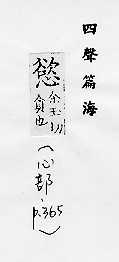 四聲篇海
慾
余玉切
貪也
(心部,
p.365)